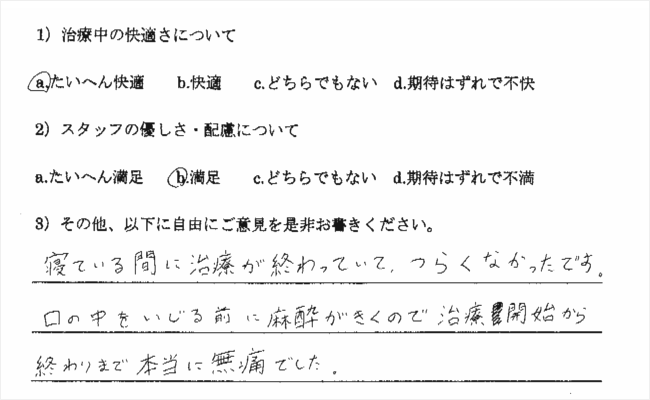 1）治療中の快適さについて
a.たいへん快適　b.快適　c.どちらでもない　d.期待はずれで不快
2）スタッフの優しさ・配慮について
a.たいへん満足　b.満足　c.どちらでもない　d.期待はずれで不満
3）その他、以下に自由にご意見を是非お書きください。
寝ている間に治療が終わっていて、つらくなかったです。
口の中をいじる前に麻酔がきくので治療開始から
終わりまで本当に無痛でした。